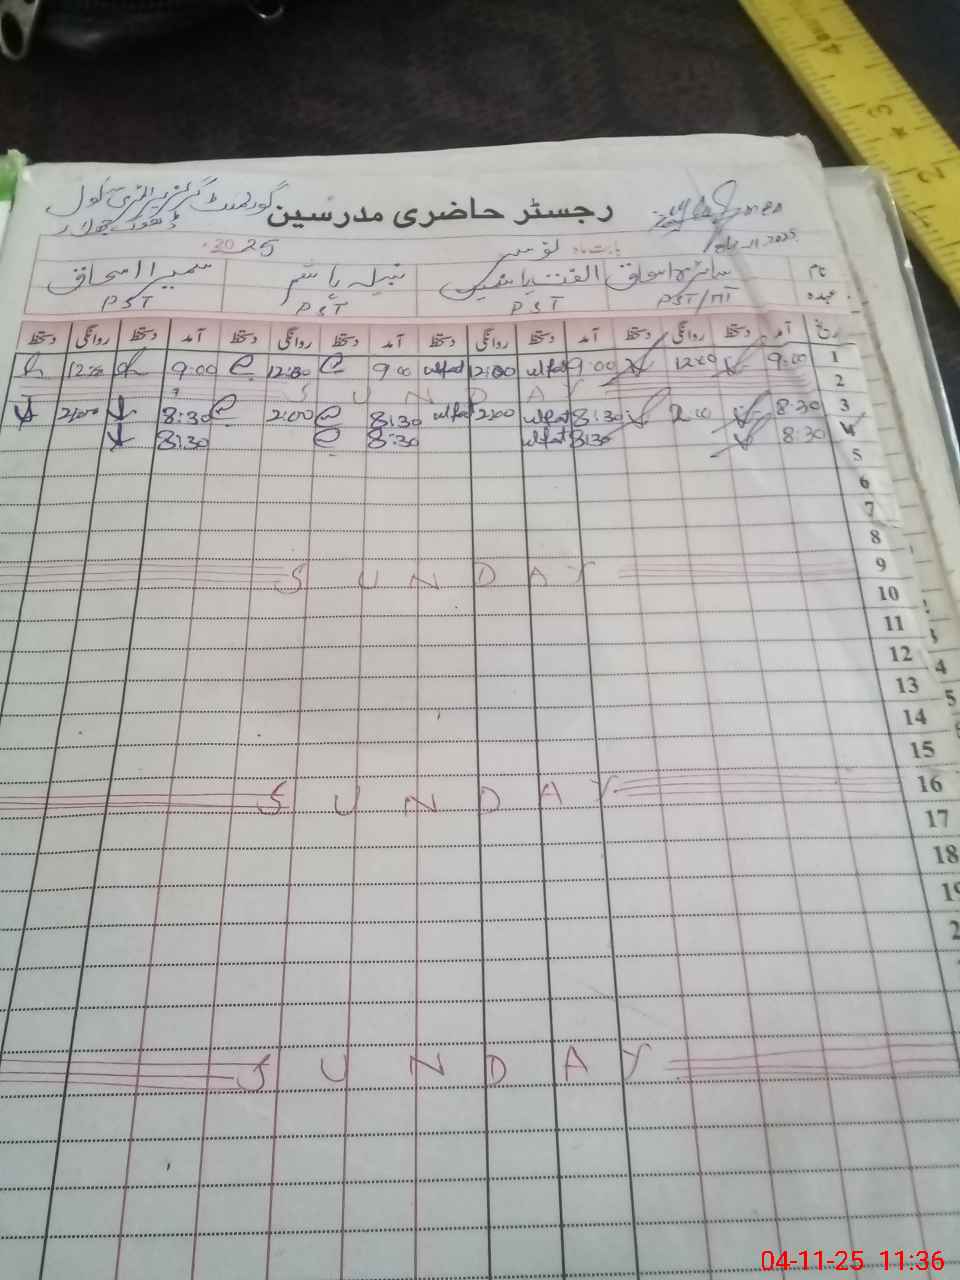 رجسٹر حاضری مدرسین گورنمنٹ گرلز پرائمری سکول
بابت ماہ نومبر 2025
نام سائرہ اسحاق الفت بشیر نبیلہ ہاشم سمیرا اسحاق
عہدہ PST/HT PST PST PST
تاریخ آمد دستخط روانگی دستخط آمد دستخط روانگی دستخط آمد دستخط روانگی دستخط آمد دستخط روانگی دستخط
1 9:00 12:00 9:00 ulfat 12:00 ulfat 9:00 12:00 9:00 12:00
2 SUNDAY
3 8:30 2:00 8:30 ulfat 2:00 ulfat 8:30 2:00 8:30 2:00
4 8:30 8:30 ulfat 8:30 8:30
5
6
7
8
9 SUNDAY
10
11
12
13
14
15
16 SUNDAY
17
18
19
2
SUNDAY
04-11-25 11:36